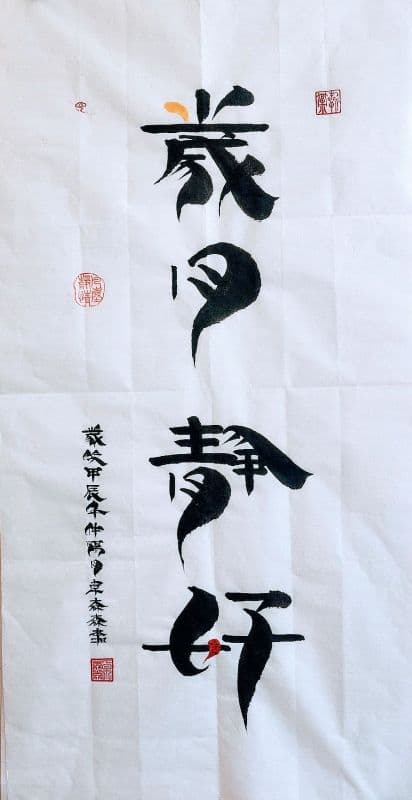 歲月靜好
歲次甲辰年仲月卓書